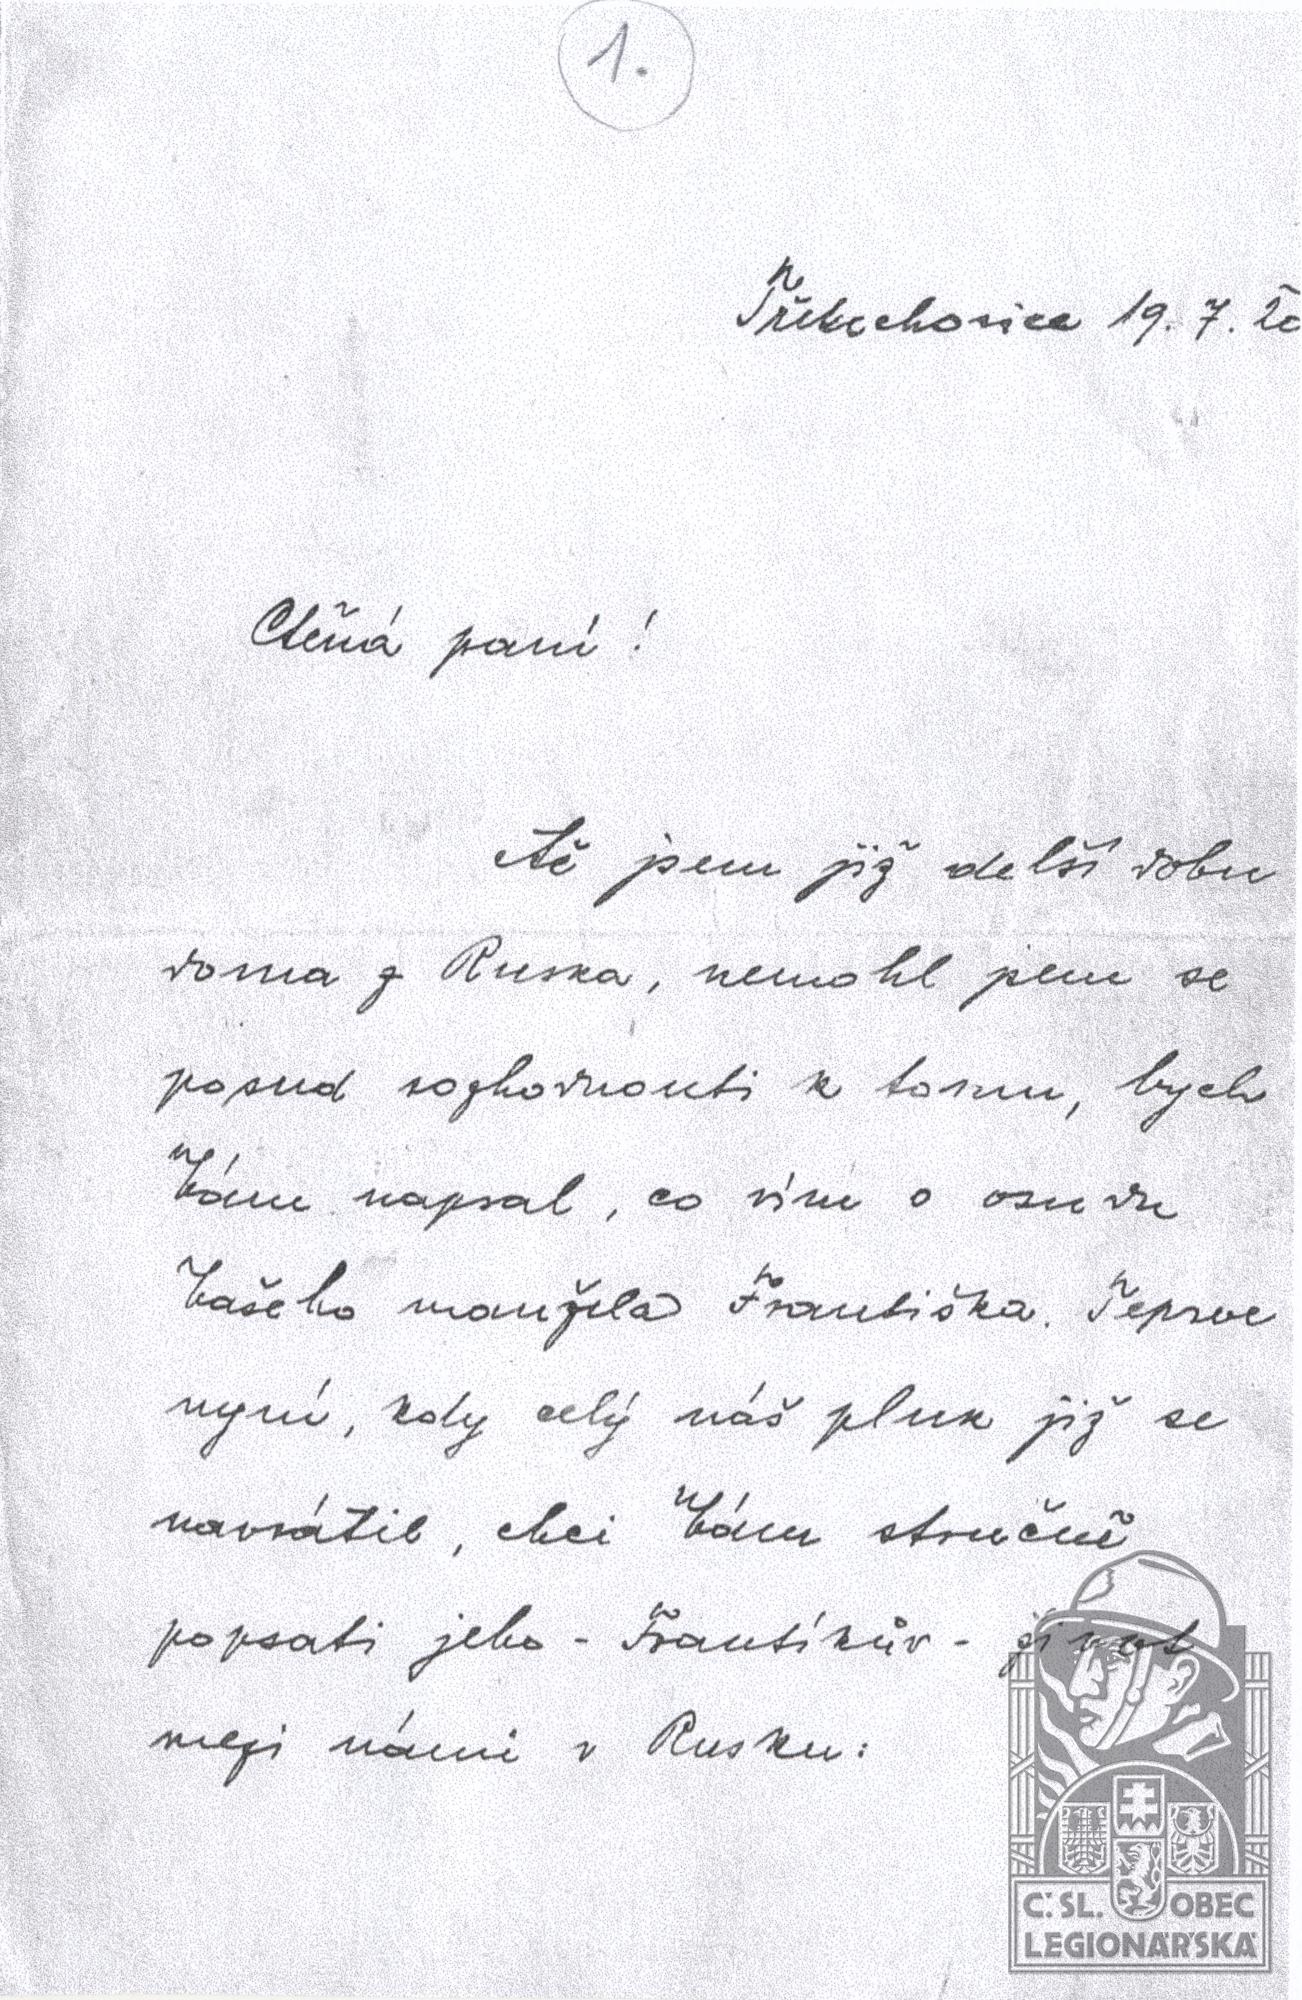 1.
Třebechovice 19. 7. 20
Ctěná paní!
Ač jsem již delší dobu
doma z Ruska, nemohl jsem se
posud rozhodnouti k tomu, bych
Vám napsal, co vím o osudu
Vašeho manžela Františka. Teprve
nyní, kdy celý náš pluk již se
navrátil, chci Vám stručně
popsati jeho - Frantíkův - život
mezi námi v Rusku:
Č. SL. OBEC
LEGIONÁŘSKÁ